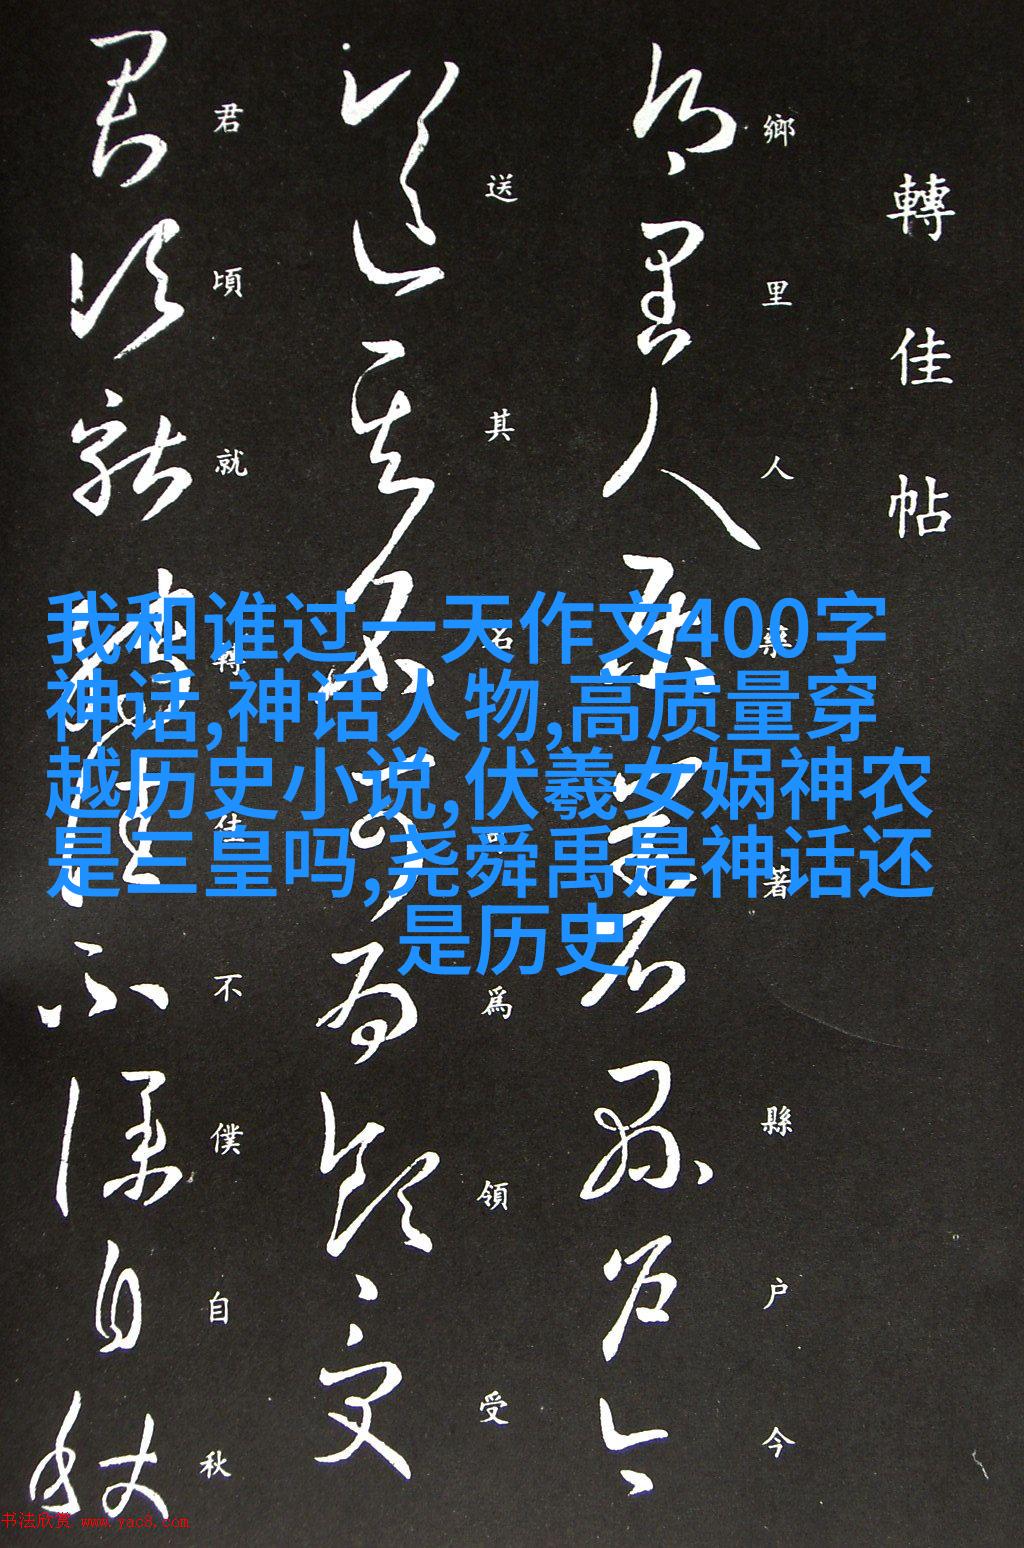 轉佳帖
鄉里人樂著縣户今
送其名可爲領受
君頃就轉佳不僕自秋
我和谁过一天作文400字
神话,神话人物,高质量穿
越历史小说,伏羲女娲神农
是三皇吗,尧舜禹是神话还
是历史
书法欣赏 www.yac8.com